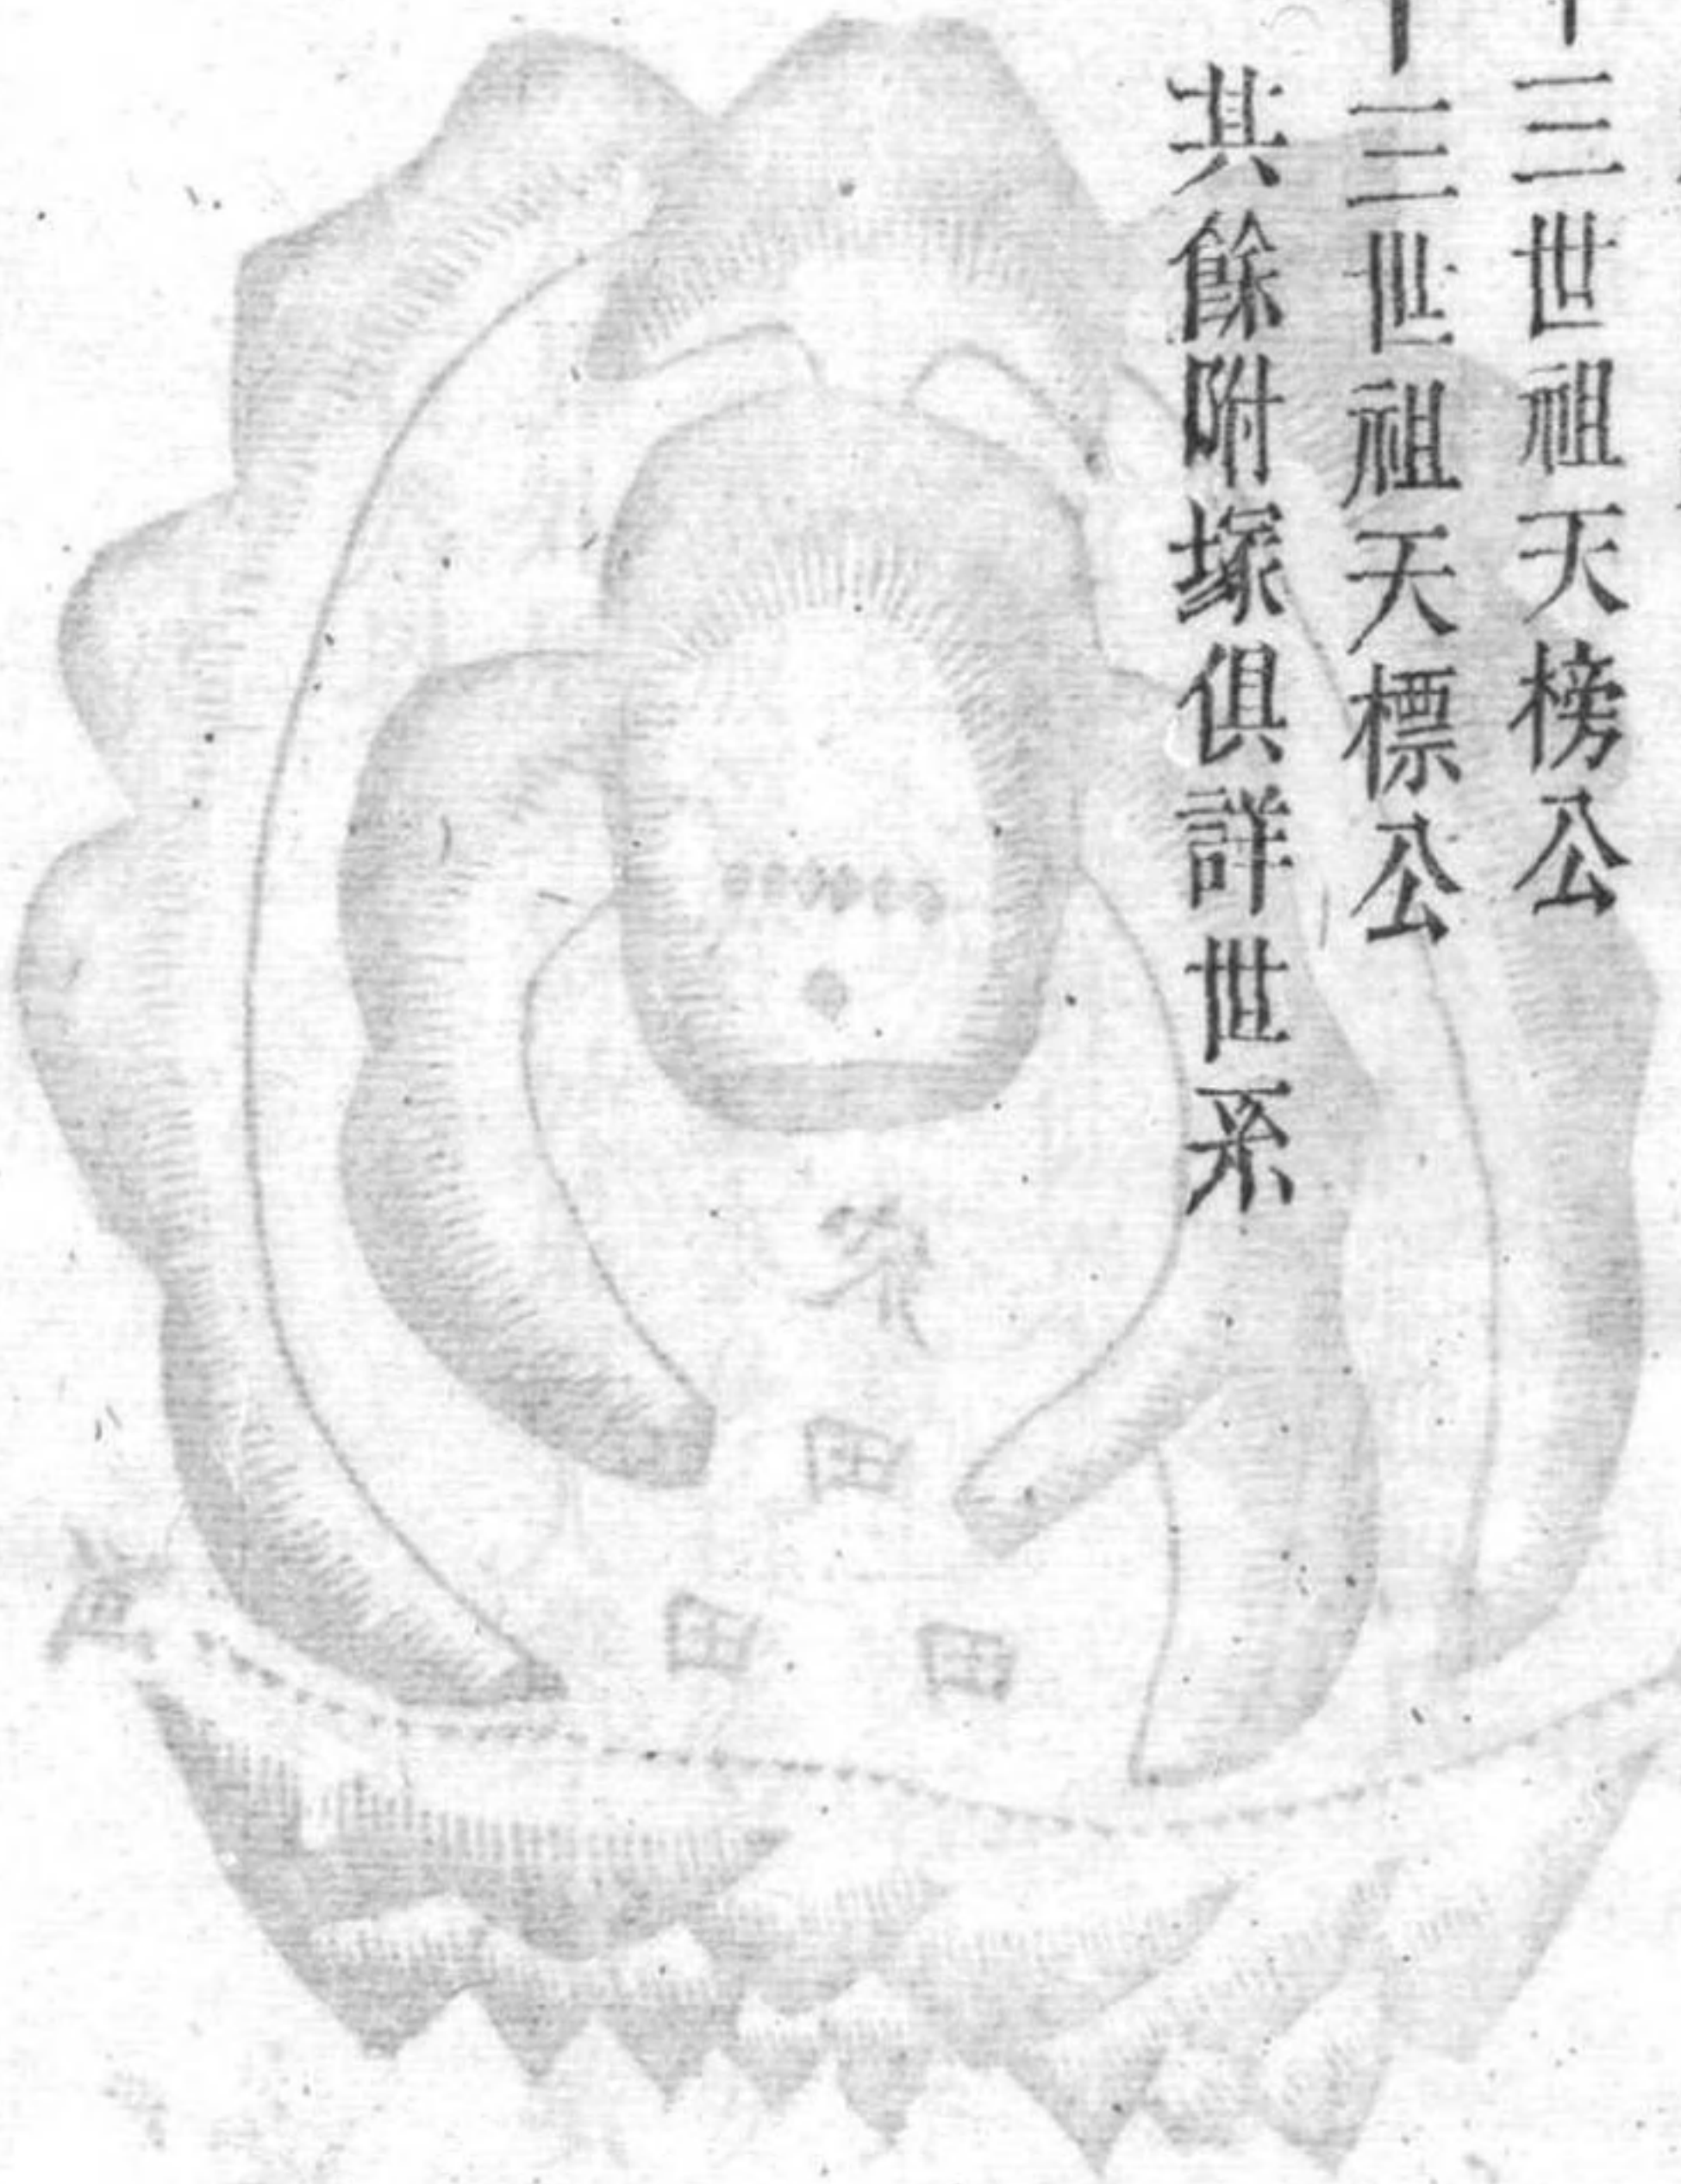 十三世祖天榜公
十三世祖天標公
其餘附塚俱詳世系
田
田
田